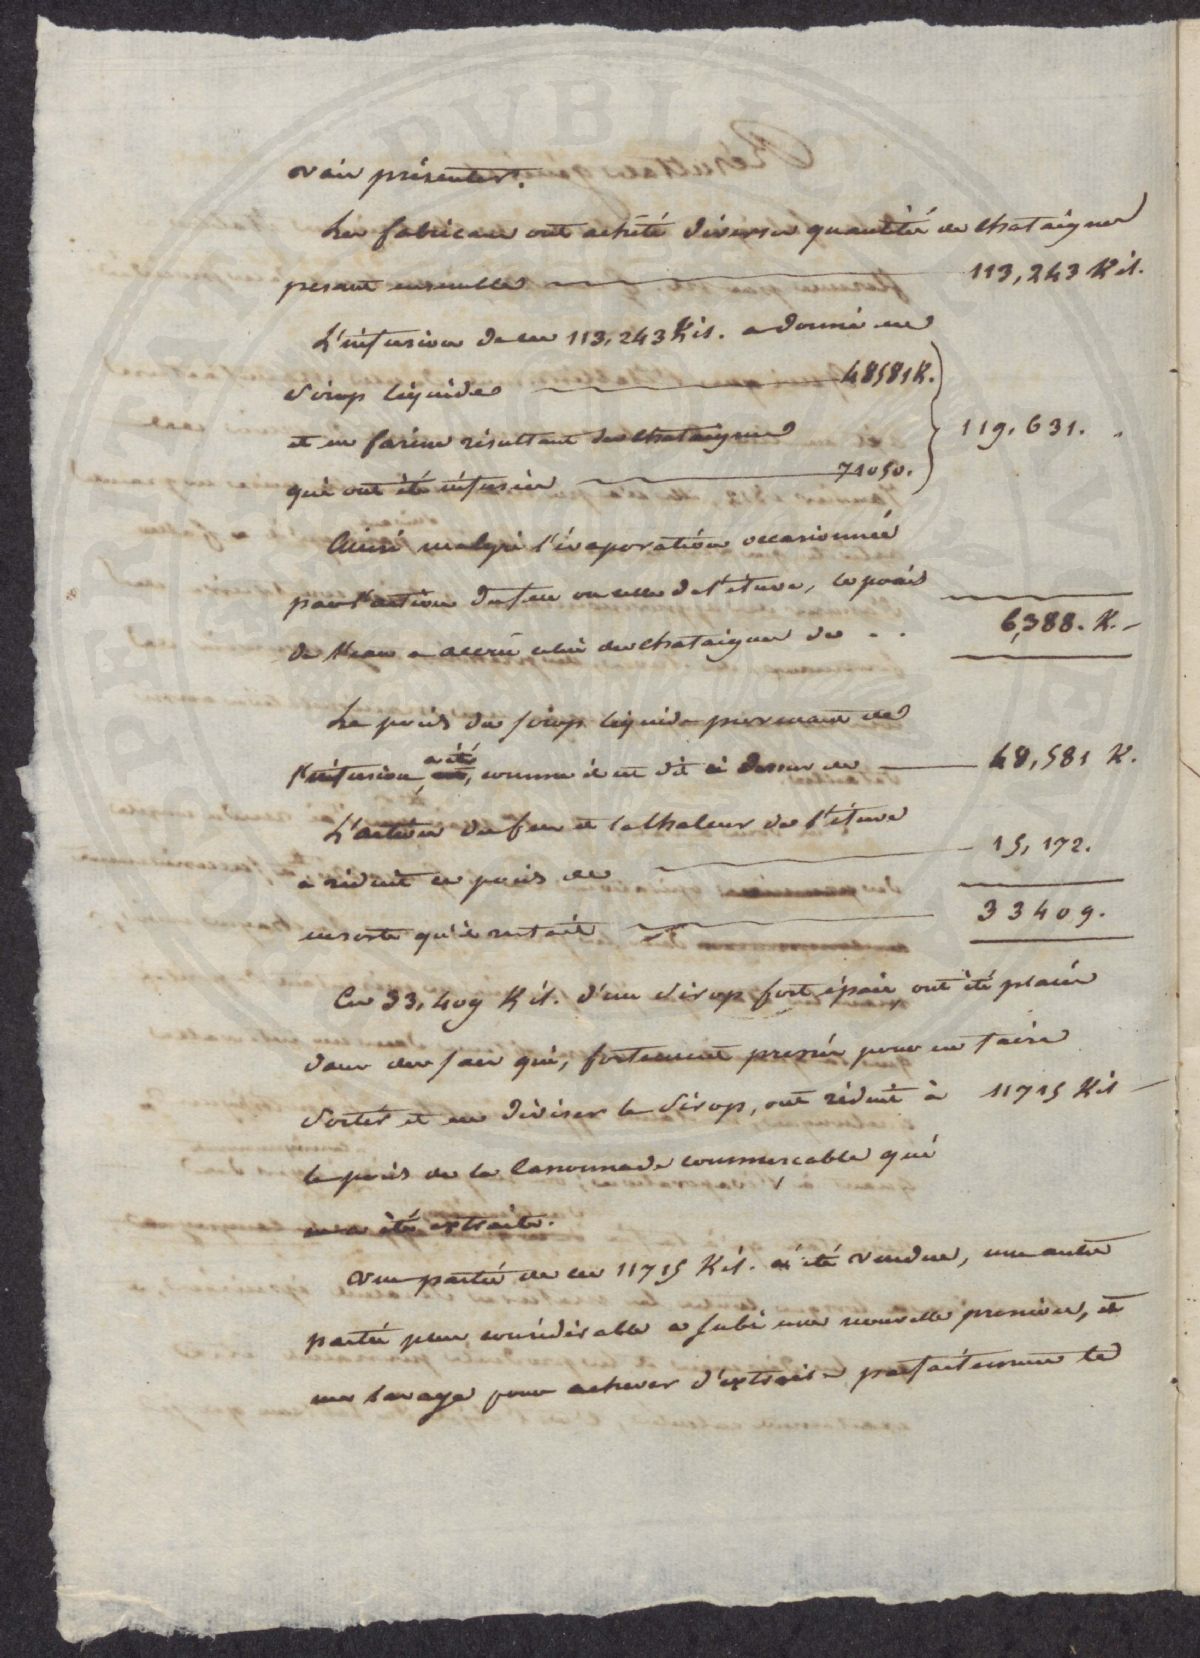 voir présenter.
Les fabricans ont acheté diverses quantités de Chataignes
pesant ensemble 113,243 Kil.
L'infusion de ces 113,243 Kil. a donné en
Sirop liquide 48581 K.
et en farine résultant des Chataignes 119.631.
qui ont été infusées 71050.
Ainsi malgré l'évaporation occasionnée
par l'action du feu ou celle de l'étuve, le poids
de l'eau a accru celui des Chataignes de .. 6,388. K.
Le poids du sirop liquide provenant de
l'infusion a été, comme il est dit ci dessus de 48,581 K.
L'action du feu et la Chaleur de l'étuve
a réduit ce poids de 15,172.
ensorte qu'il restait 33409.
Ces 33,409 Kil. d'un Sirop fort épais, ont été placés
dans des sacs qui, fortement pressés pour en faire
Sortir et en diviser le Sirop, ont réduit à 11715 Kil
le poids de la Cassonnade commerçable qui
en a été extraite.
Une partie de ces 11715 Kil. a été vendue, une autre
partie plus considérable a subi une nouvelle pression, et
un lavage pour achever d'extraire parfaitement le
PVBLI